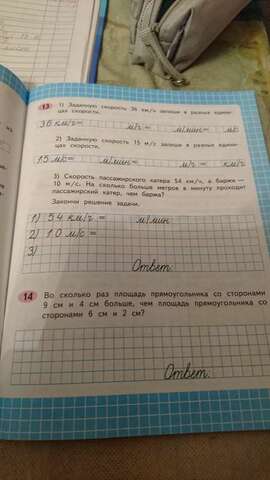 13 1) Заданную скорость 36 км/ч запиши в разных едини-
цах скорости.
36 км/ч = м/ч = м/мин = м/с
2) Заданную скорость 15 м/с запиши в разных едини-
цах скорости.
15 м/с = м/мин = м/ч = км/ч
3) Скорость пассажирского катера 54 км/ч, а баржи —
10 м/с. На сколько больше метров в минуту проходит
пассажирский катер, чем баржа?
Закончи решение задачи.
1) 54 км/ч = м/мин
2) 10 м/с =
3)
Ответ:
14 Во сколько раз площадь прямоугольника со сторонами
9 см и 4 см больше, чем площадь прямоугольника со
сторонами 6 см и 2 см?
Ответ: